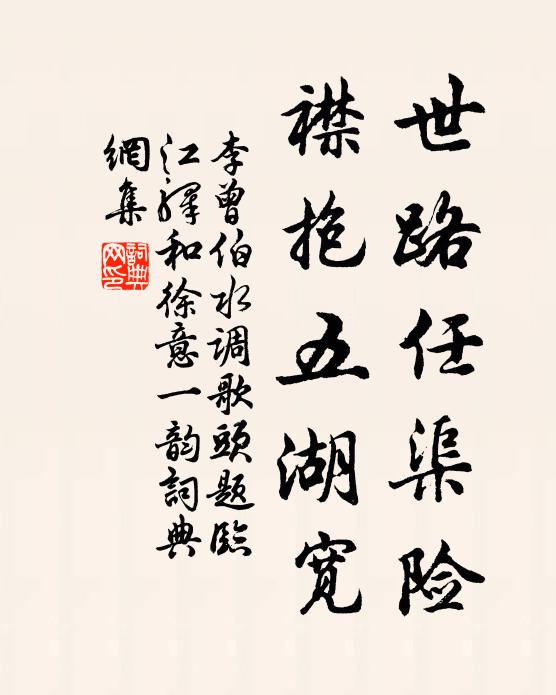 世路任渠险
襟抱五湖宽
李曾伯水调歌頭题臨
江驛和徐意一韵詞典
網集
詞典网印